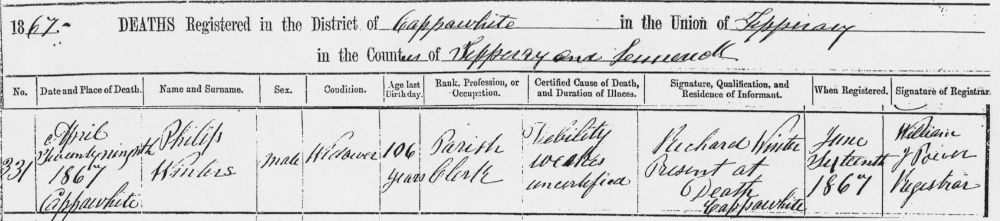 1867. DEATHS Registered in the District of Cappawhite in the Union of Tipperary
in the Counties of Tipperary and Limerick
No. Date and Place of Death. Name and Surname. Sex. Condition. Age last Birthday. Rank, Profession, or Occupation. Certified Cause of Death, and Duration of Illness. Signature, Qualification, and Residence of Informant. When Registered. Signature of Registrar.
331
April
Twenty ninth
1867
Cappawhite
Philip
Winters
Male
Widower
106
years
Parish
Clerk
Debility
weeks
uncertified
Richard Winter
Present at
Death
Cappawhite
June
1867
William
J Power
Registrar